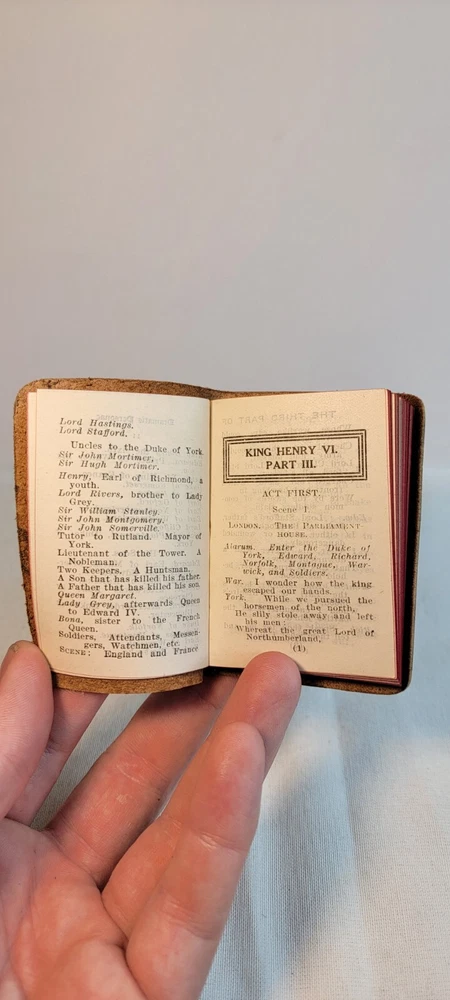 Lord Hastings.
Lord Stafford.
Uncles to the Duke of York
Sir John Mortimer,
Sir Hugh Mortimer.
Henry, Earl of Richmond, a
youth.
Lord Rivers, brother to Lady
Grey.
Sir William Stanley.
Sir John Montgomery.
Sir John Somerville.
Tutor to Rutland. Mayor of
York.
Lieutenant of the Tower. A
Nobleman.
Two Keepers. A Huntsman.
A Son that has killed his father.
A Father that has killed his son.
Queen Margaret.
Lady Grey, afterwards Queen
to Edward IV.
Bona, sister to the French
Queen.
Soldiers, Attendants, Messen-
gers, Watchmen, etc.
SCENE: England and France
KING HENRY VI.
PART III.
ACT FIRST.
Scene I.
LONDON. THE PARLIAMENT-
HOUSE.
Alarum. Enter the Duke of
York, Edward, Richard,
Norfolk, Montague, War-
wick, and Soldiers.
War. I wonder how the king
escaped our hands.
York. While we pursued the
horsemen of the north,
He slily stole away and left
his men:
Whereat the great Lord of
Northumberland,
(1)